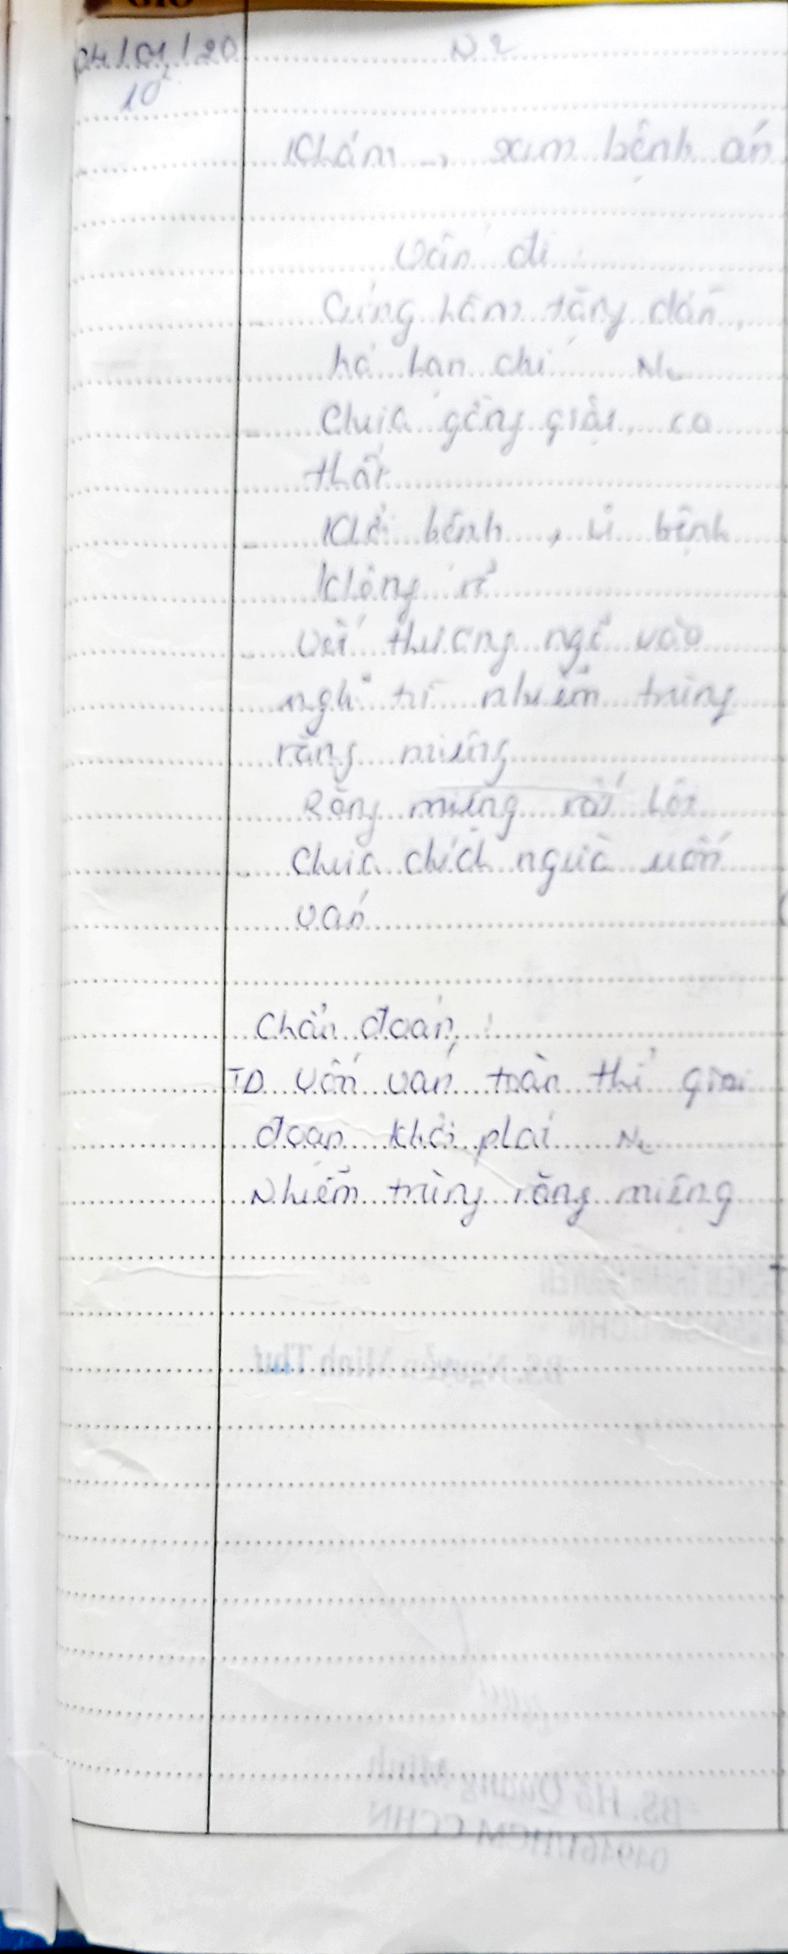 04/01/20 N2
10
Khám, xem bệnh án
Vấn đề:
Cứng hàm tăng dần,
há hạn chế N2
Chưa gồng giật, co
thắt
Khởi bệnh, ủ bệnh
không rõ
Vết thương ngõ vào
nghĩ từ nhiễm trùng
răng miệng
Răng miệng
Chưa chích ngừa uốn
ván
Chẩn đoán:
TD uốn ván toàn thể giai
đoạn khởi phát N2
Nhiễm trùng răng miệng
BS. Nguyễn Minh Thư
BS. Hồ Quang Minh
049461/HCM-CCHN